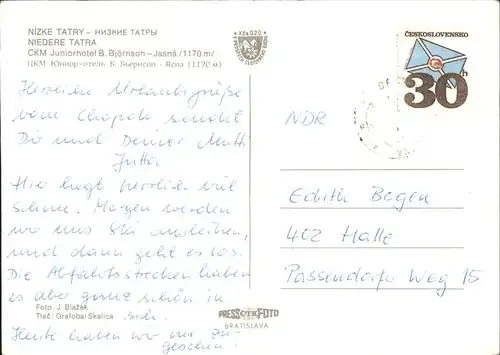 NÍZKE TATRY – НИЗКИЕ ТАТРЫ
NIEDERE TATRA
CKM Juniorhotel B. Björnson – Jasná /1170 m/
ЦКМ Юниор-отель Б. Бьернсон - Ясна (1170 м)
Kčs 0,20
ČESKOSLOVENSKO
30 h
Herzlichen Urlaubsgrüße
vom Chopok sendet
Dir und Deiner Mutti
Jutta
Hier liegt herrlich viel
Schnee. Morgen werden
wir uns Ski ausleihen,
und dann geht es los.
Die Abfahrtsstrecken haben
es aber ganz schön in
sich.
Heute haben wir nur zu-
gesehen.
NDR
Edith Bogen
402 Halle
Passendorfer Weg 15
Foto: J. Blažek
Tlač: Grafobal Skalica
PRESSFOTO
BRATISLAVA